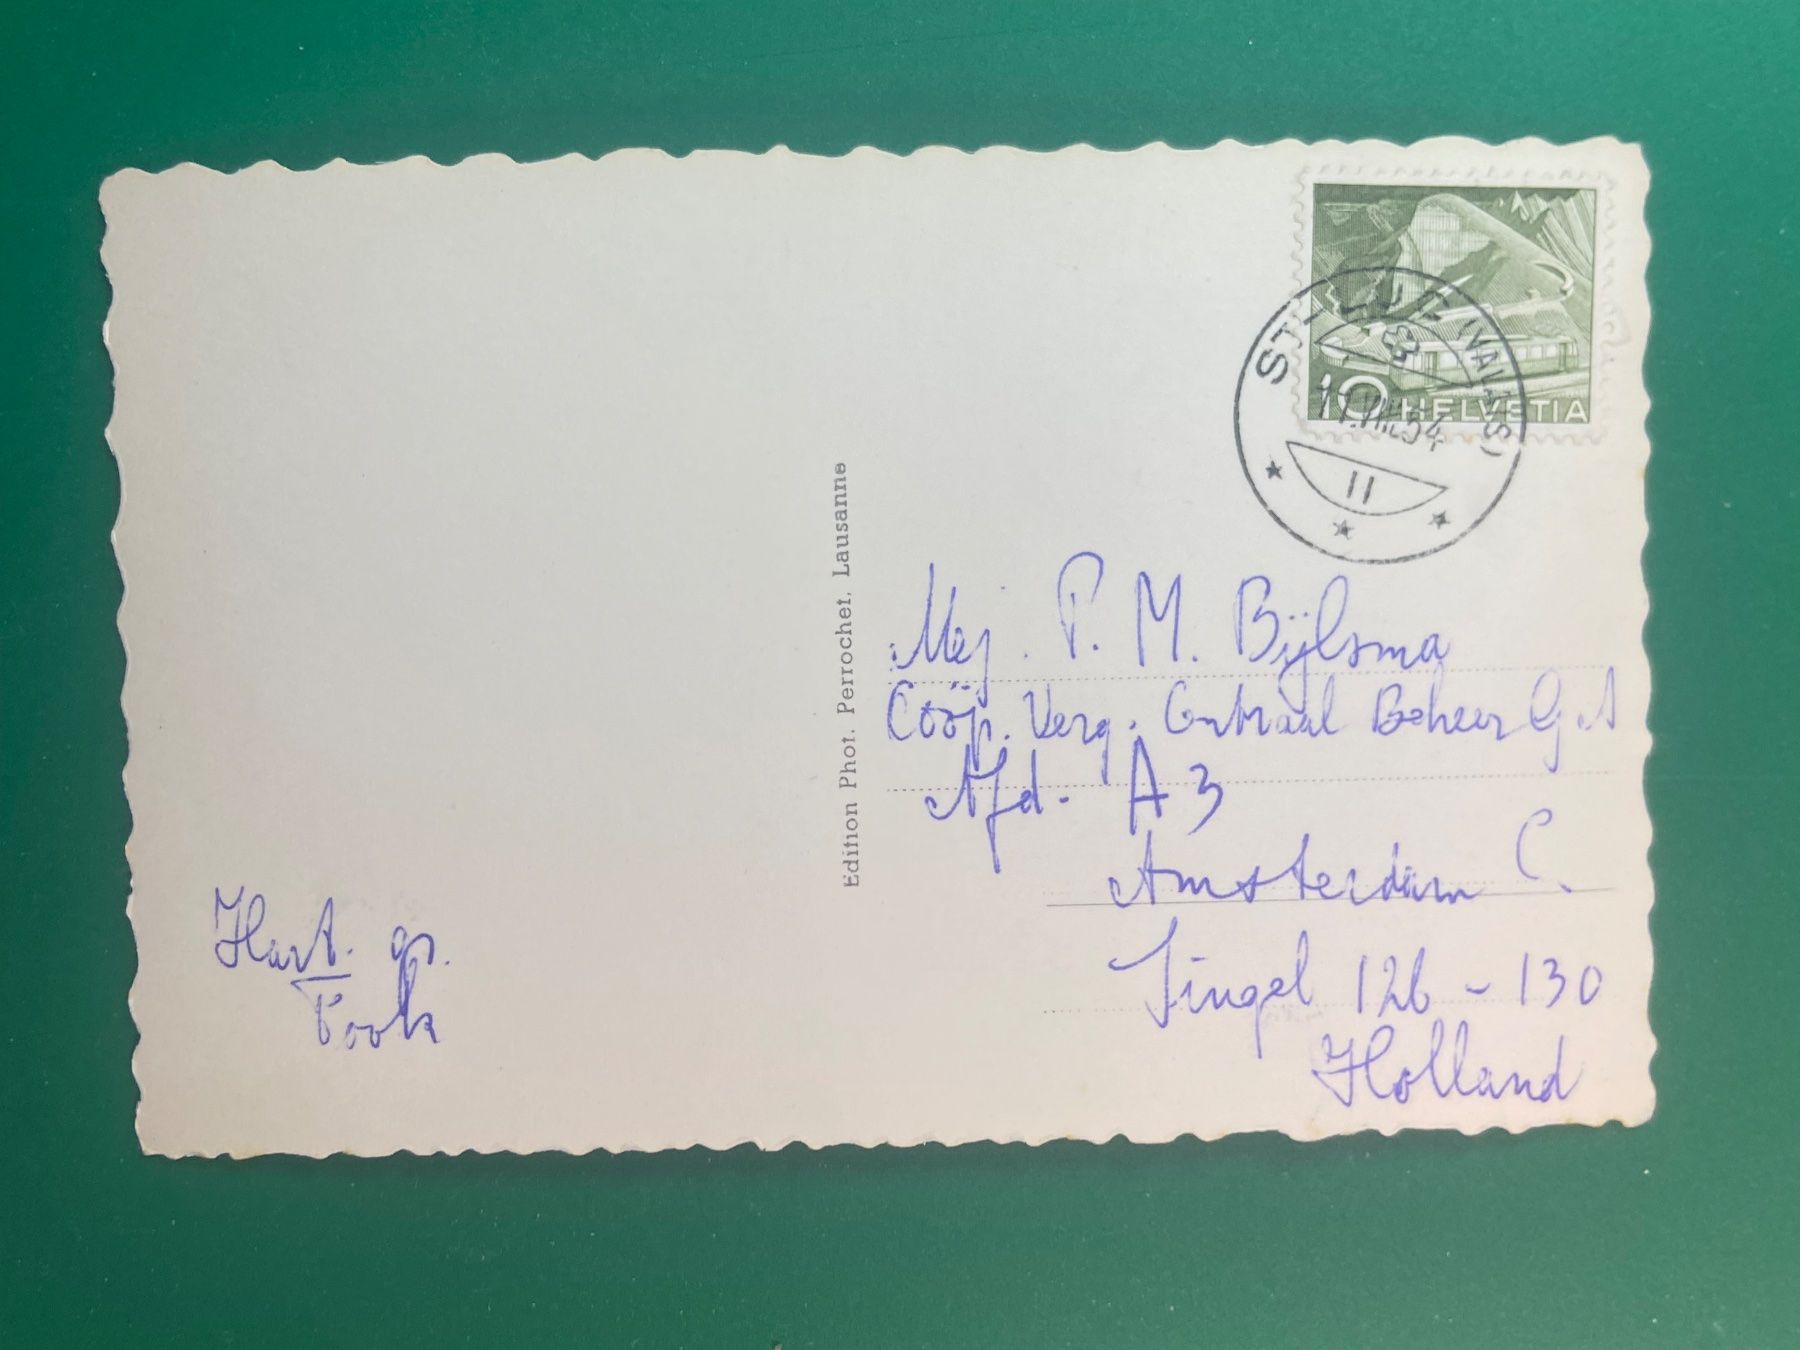 10 HELVETIA
ST. LUC (VALAIS)
11
Edition Phot. Perrochet, Lausanne
Mej. P. M. Bijlsma
Coöp. Verg. Centraal Beheer G.A
Afd. A 3
Amsterdam C.
Singel 126 - 130
Holland
Hart. gr.